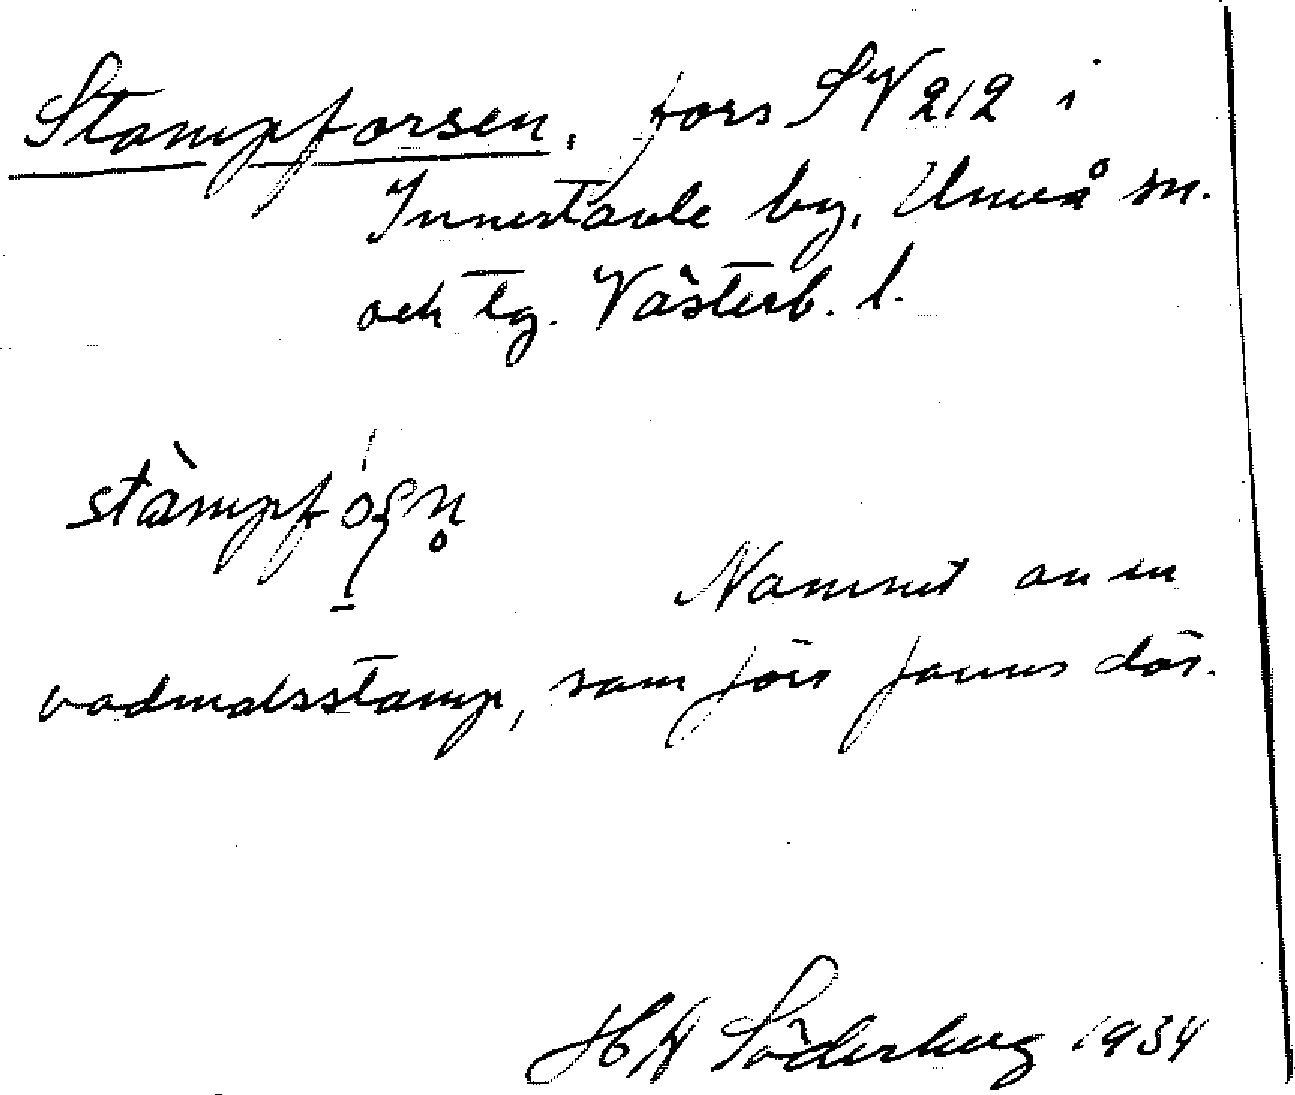 Stampforsen, fors SV 212 i
Innertavle by, Umeå sn.
och tg. Västerb. l.
stàmpfóʂn̥
Namnet av en
vadmalsstamp, som förr fanns där.
H Söderberg 1934